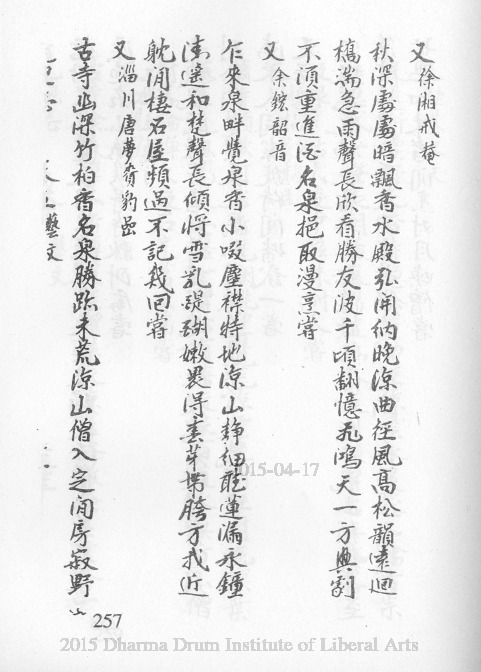 又 徐湘戒菴
秋深處處暗飄香水殿弘開納晚涼曲徑風高松韻遠迴
橋湍急雨聲長欣看勝友波千頃翻憶飛鴻天一方興劇
不須重進酒名泉挹取漫烹嘗
又 余鋐韶音
乍來泉畔覺泉香小啜塵襟特地涼山靜細聽蓮漏永鐘
遠和梵聲長傾將雪乳醍醐嫩異得春芽 方我近
躭閒棲石屋頻過不記幾回嘗
又 淄川唐夢賚豹嵒
古寺幽深竹柏香名泉勝跡未荒涼山僧入定閒房寂野
藝文
257
2015-04-17
2015 Dharma Drum Institute of Liberal Arts